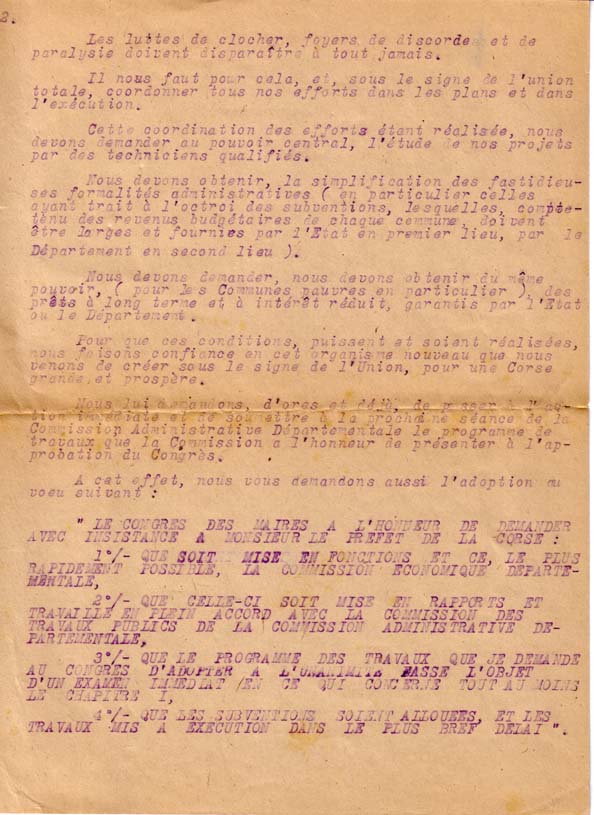 2.
Les luttes de clocher, foyers de discorde et de
paralysie doivent disparaître à tout jamais.
Il nous faut pour cela, et, sous le signe de l'union
totale, coordonner tous nos efforts dans les plans et dans
l'exécution.
Cette coordination des efforts étant réalisée, nous
devons demander au pouvoir central, l'étude de nos projets
par des techniciens qualifiés.
Nous devons obtenir, la simplification des fastidieu-
ses formalités administratives ( en particulier celles
ayant trait à l'octroi des subventions, lesquelles, compte-
tenu des revenus budgétaires de chaque commune, doivent
être larges et fournies par l'Etat en premier lieu, par le
Département en second lieu ).
Nous devons demander, nous devons obtenir du même
pouvoir, ( pour les Communes pauvres en particulier ), des
prêts à long terme et à intérêt réduit, garantis par l'Etat
ou le Département.
Pour que ces conditions, puissent et soient réalisées,
nous faisons confiance en cet organisme nouveau que nous
venons de créer sous le signe de l'Union, pour une Corse
grande et prospère.
Nous lui demandons, d'ores et déjà, de passer à l'ac-
tion immédiate et de soumettre à la prochaine séance de la
Commission Administrative Départementale le programme de
travaux que la Commission a l'honneur de présenter à l'ap-
probation du Congrès.
A cet effet, nous vous demandons aussi l'adoption du
voeu suivant :
" LE CONGRES DES MAIRES A L'HONUEUR DE DEMANDER
AVEC INSISTANCE A MONSIEUR LE PREFET DE LA CORSE :
1°/- QUE SOIT MISE EN FONCTIONS ET CE, LE PLUS
RAPIDEMENT POSSIBLE, LA COMMISSION ECONOMIQUE DEPARTE-
MENTALE,
2°/- QUE CELLE-CI SOIT MISE EN RAPPORTS ET
TRAVAILLE EN PLEIN ACCORD AVEC LA COMMISSION DES
TRAVAUX PUBLICS DE LA COMMISSION ADMINISTRATIVE DE-
PARTEMENTALE,
3°/- QUE LE PROGRAMME DES TRAVAUX QUE JE DEMANDE
AU CONGRES D'ADOPTER A L'UNANIMITE FASSE L'OBJET
D'UN EXAMEN IMMEDIAT /EN CE QUI CONCERNE TOUT AU MOINS
LE CHAPITRE I,
4°/- QUE LES SUBVENTIONS SOIENT ALLOUEES, ET LES
TRAVAUX MIS A EXECUTION DANS LE PLUS BREF DELAI ".